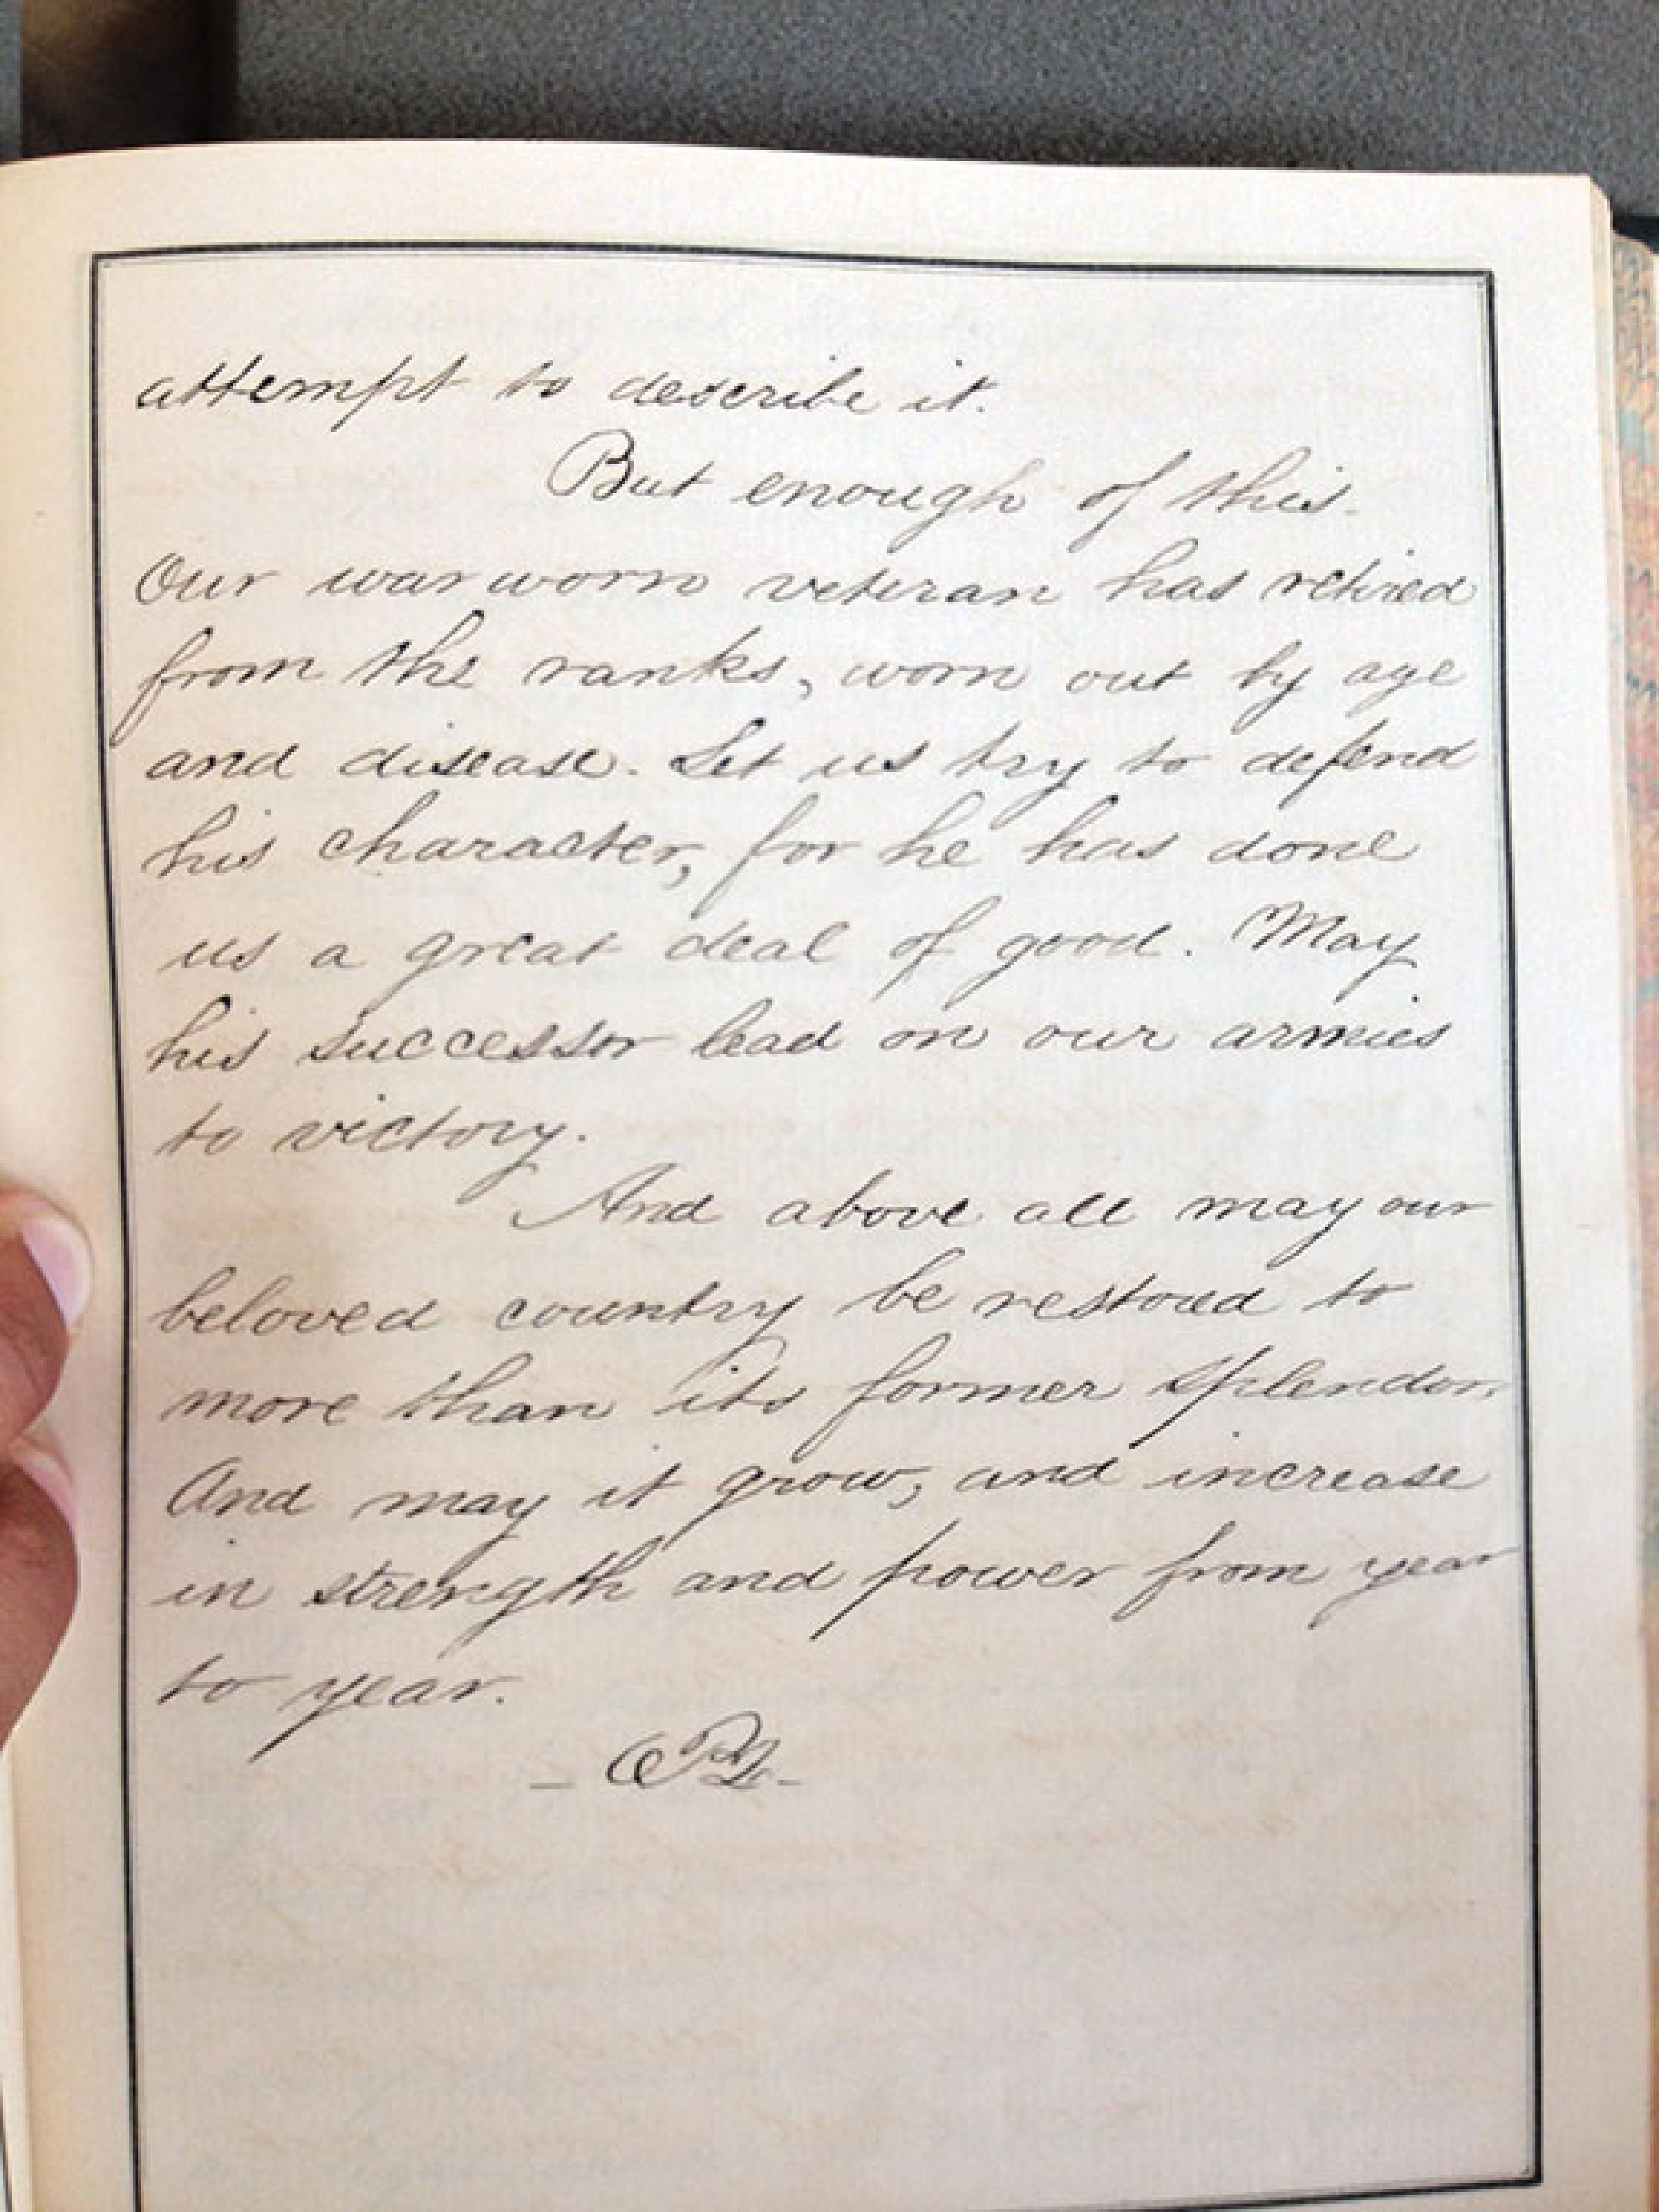 attempt to describe it.
But enough of this.
Our war worn veteran has retired
from the ranks, worn out by age
and disease. Let us try to defend
his character, for he has done
us a great deal of good. May
his successor lead on our armies
to victory.
And above all may our
beloved country be restored to
more than its former splendor.
And may it grow, and increase
in strength and power from year
to year.